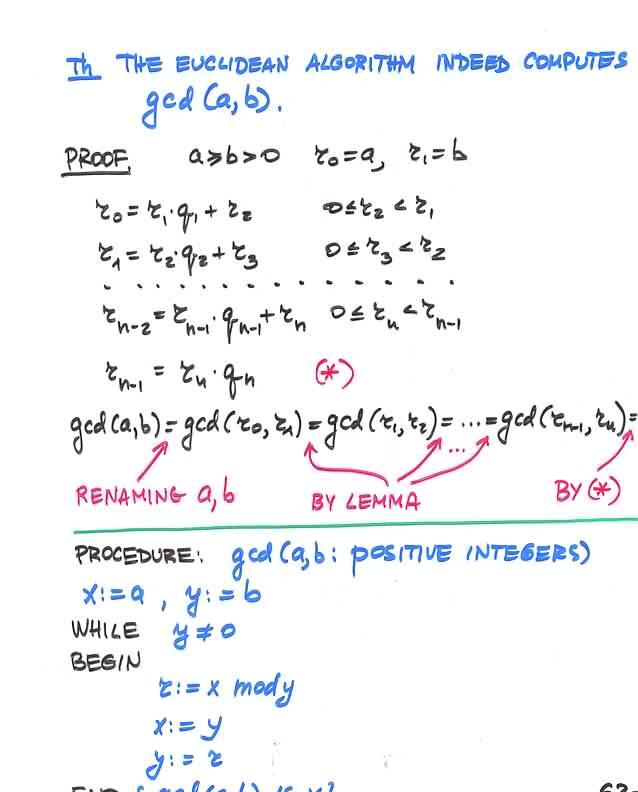 Th THE EUCLIDEAN ALGORITHM INDEED COMPUTES
gcd (a, b).
PROOF. a ≥ b > 0 r₀ = a, r₁ = b
r₀ = r₁·q₁ + r₂ 0 ≤ r₂ < r₁
r₁ = r₂·q₂ + r₃ 0 ≤ r₃ < r₂
. . . . . . . . . . . . . . .
rₙ₋₂ = rₙ₋₁·qₙ₋₁ + rₙ 0 ≤ rₙ < rₙ₋₁
rₙ₋₁ = rₙ·qₙ (*)
gcd (a, b) = gcd (r₀, r₁) = gcd (r₁, r₂) = ... = gcd (rₙ₋₁, rₙ) =
...
RENAMING a, b BY LEMMA BY (*)
PROCEDURE: gcd (a, b: POSITIVE INTEGERS)
x := a , y := b
WHILE y ≠ 0
BEGIN
r := x mod y
x := y
y := r